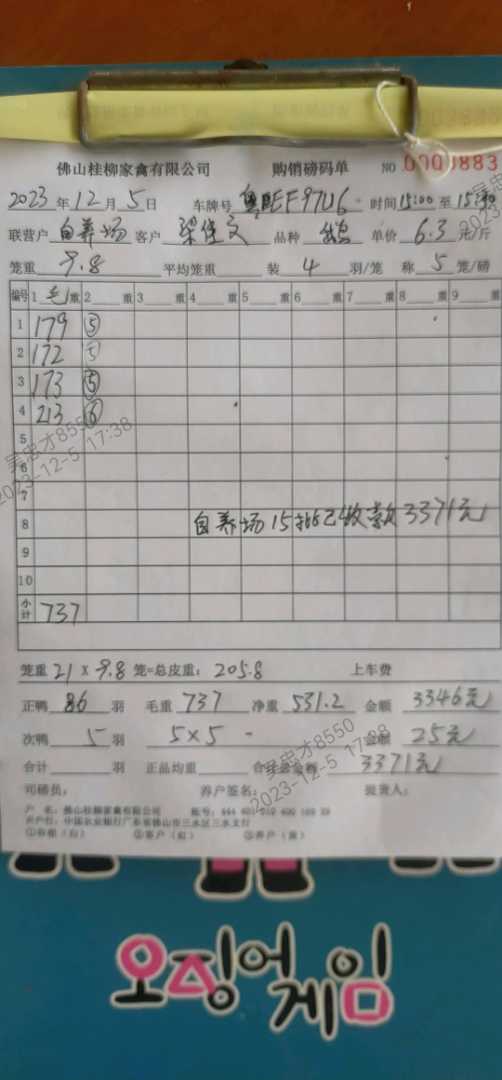 佛山桂柳家禽有限公司 购销磅码单 NO 0000883
2023年12月5日 车牌号 粤EF97U6 时间15:00至15:30
联营户 自养场 客户 梁佳文 品种 单价 6.3元/斤
笼重 9.8 平均笼重 装 4 羽/笼 称 5 笼/磅
编号 1 毛重 2 重 3 重 4 重 5 重 6 重 7 重 8 重 9 重
1 179 ⑤
2 172 5
3 173 ⑤
4 213 ⑥
5
6
7
8 自养场15批已收款3371元
9
10
小计 737
笼重 21×9.8 笼=总皮重: 205.8 上车费
正鸭 86 羽 毛重 737 净重 531.2 金额 3346元
次鸭 5 羽 5×5 金额 25元
合计 羽 正品均重 合计总金额 3371元
司磅员: 养户签名: 提货人:
户 名: 佛山桂柳家禽有限公司 账号:
开户行: 中国农业银行广东省佛山市三水区三水支行
①存根(白) ②客户(红) ③养户(黄)
吴忠才8550
2023-12-5 17:38
吴忠才8550
2023-12-5 17:38
吴忠才
오징어게임